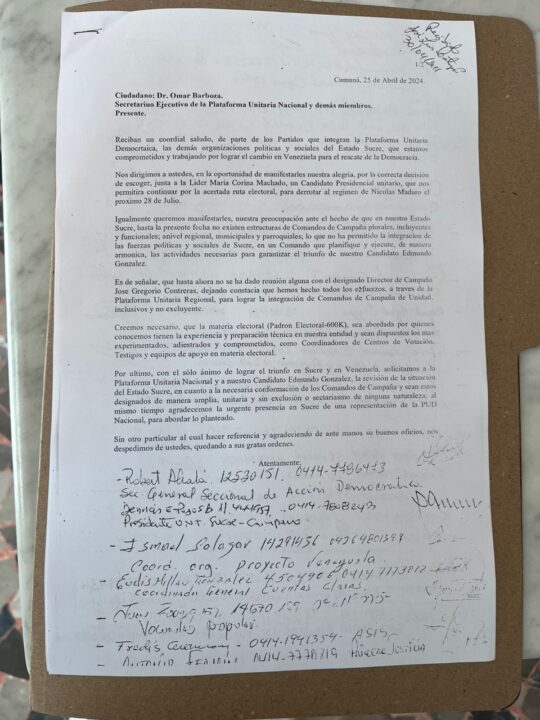 Cumaná, 25 de Abril de 2024.
Ciudadano: Dr. Omar Barboza.
Secretariuo Ejecutivo de la Plataforma Unitaria Nacional y demás miembros.
Presente.
Reciban un coordial saludo, de parte de los Partidos que integran la Plataforma Unitaria
Democrtaica, las demás organizaciones politicas y sociales del Estado Sucre, que estamos
comprometidos y trabajando por lograr el cambio en Venezuela para el rescate de la Democracia.
Nos dirigimos a ustedes, en la oportunidad de manifestarles nuestra alegria, por la correcta decisión
de escoger, junta a la Lider Maria Corina Machado, un Candidato Presidencial unitario, que nos
permitira continuar por la acertada ruta electoral, para derrotar al regimen de Nicolas Maduro el
proximo 28 de Julio.
Igualmente queremos manifestarles, nuestra preocupación ante el hecho de que en nuestro Estado
Sucre, hasta la presente fecha no existen estructuras de Comandos de Campaña plurales, incluyentes
y funcionales; anivel regional, municipales y parroquiales; lo que no ha permitido la integración de
las fuerzas politicas y sociales de Sucre, en un Comando que planifique y ejecute, de manera
armonica, las actividades necesarias para garantizar el triunfo de nuestro Candidato Edmundo
Gonzalez.
Es de señalar, que hasta ahora no se ha dado reunión alguna con el designado Director de Campaña
Jose Gregorio Contreras, dejando constacia que hemos hecho todos los esfuerzos, a traves de la
Plataforma Unitaria Regional, para lograr la integración de Comandos de Campaña de Unidad,
inclusivos y no excluyente.
Creemos necesario, que la materia electoral (Padron Electoral-600K), sea abordada por quienes
conocemos tienen la experiencia y preparación técnica en nuestra entidad y sean dispustos los mas
experimentados, adiestrados y comprometidos, como Coordinadores de Centros de Votación,
Testigos y equipos de apoyo en materia electoral.
Por ultimo, con el sólo ánimo de lograr el triunfo en Sucre y en Venezuela, solicitamos a la
Plataforma Unitaria Nacional y a nuestro Candidato Edmundo Gonzalez, la revisión de la situación
del Estado Sucre, en cuanto a la necesaria conformación de los Comandos de Campaña y sean estos
designados de manera amplia, unitaria y sin exclusión o sectariesmo de ninguna naturaleza, al
mismo tiempo agradecemos la urgente presencia en Sucre de una representación de la PUD
Nacional, para abordar lo planteado.
Sin otro particular al cual hacer referencia y agradeciendo de ante manos su buenos oficios, nos
despedimos de ustedes, quedando a sus gratas ordenes.
Atentamente:
- Robert Alcalá. 12530151. 0414-7786473
Sec. General Seccional de Acción Democratica
Presidente U.N.T. Sucre-
- Ismael Salazar 14291436 04264801399
Coord. org. proyecto Venezuela
coordinador General Cuentas Claras.
- 14670159
Popular
- Fredis 0414-1941354-
- Antonio 0414-7770119 Justicia